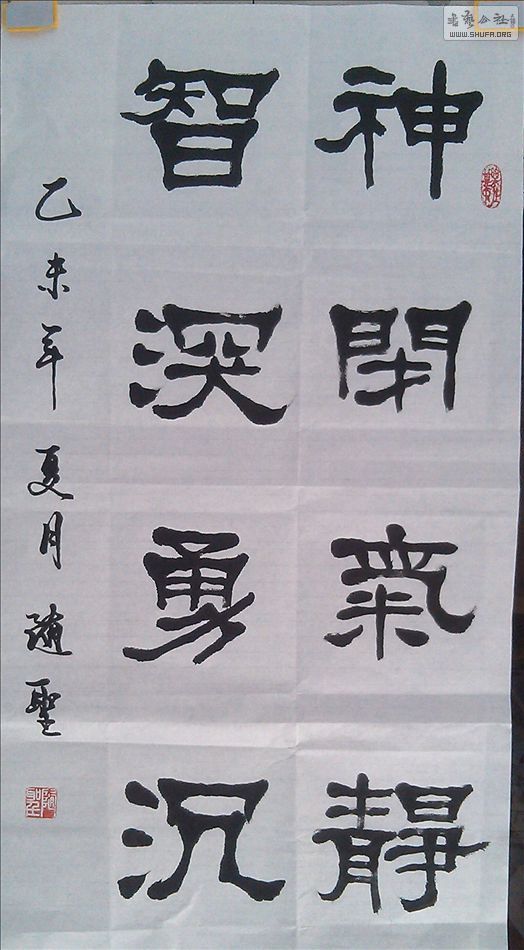 神閑氣靜
智深勇沉
乙未年夏月隨聖
書藝公社
WWW.SHUFA.ORG